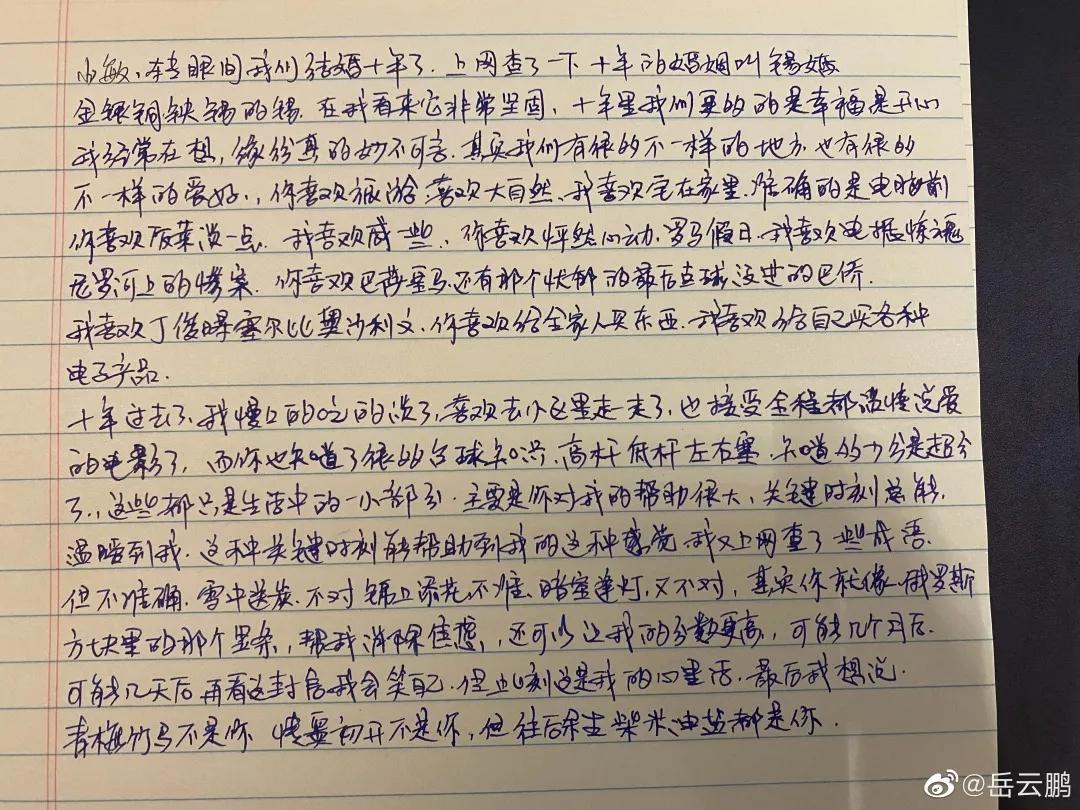 小敏、转眼间我们结婚十年了. 上网查了一下 十年的婚姻叫锡婚
金银铜铁锡的锡. 在我看来它非常坚固, 十年里我们更多的是幸福是开心
我经常在想, 缘份真的妙不可言. 其实我们有很多不一样的地方. 也有很多
不一样的爱好., 你喜欢旅游 喜欢大自然、我喜欢宅在家里. 准确的是电脑前
你喜欢饭菜淡一点. 我喜欢咸一些. 你喜欢怦然心动. 罗马假日. 我喜欢电锯惊魂
尼罗河上的惨案. 你喜欢巴蒂 罗马 还有那个忧郁的最后点球没进的巴乔.
我喜欢丁俊晖 塞尔比 奥沙利文. 你喜欢给全家人买东西. 我喜欢给自己买各种
电子产品.
十年过去了. 我慢慢的吃的淡了. 喜欢去小区里走一走了. 也接受全程都谈情说爱
的电影了, 而你也知道了很多台球知识、高杆 低杆 左右塞. 知道多少分是超分
了., 这些都只是生活中的一小部分. 主要是你对我的帮助很大、关键时刻总能.
温暖到我. 这种关键时刻能帮助到我的这种感觉. 我又上网查了些成语.
但不准确. 雪中送炭. 不对 锦上添花. 不准、暗室逢灯. 又不对, 其实你就像 俄罗斯
方块里的那个竖条, 帮我消除焦虑, 还可以让我的分数更高, 可能几个月后.
可能几天后 再看这封信我会笑自己. 但此刻这是我的心里话. 最后我想说.
青梅竹马不是你 情窦初开不是你, 但往后余生 柴米油盐都是你.
@岳云鹏